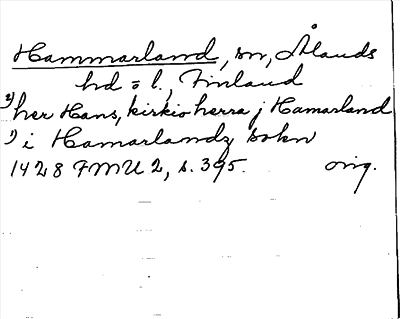 Hammarland, sn, Ålands
hd o l., Finland
2) her Hans, kirkio herra j Hamarland
1) i Hamarlandz sokn
1428 FMU 2, s. 395. orig.